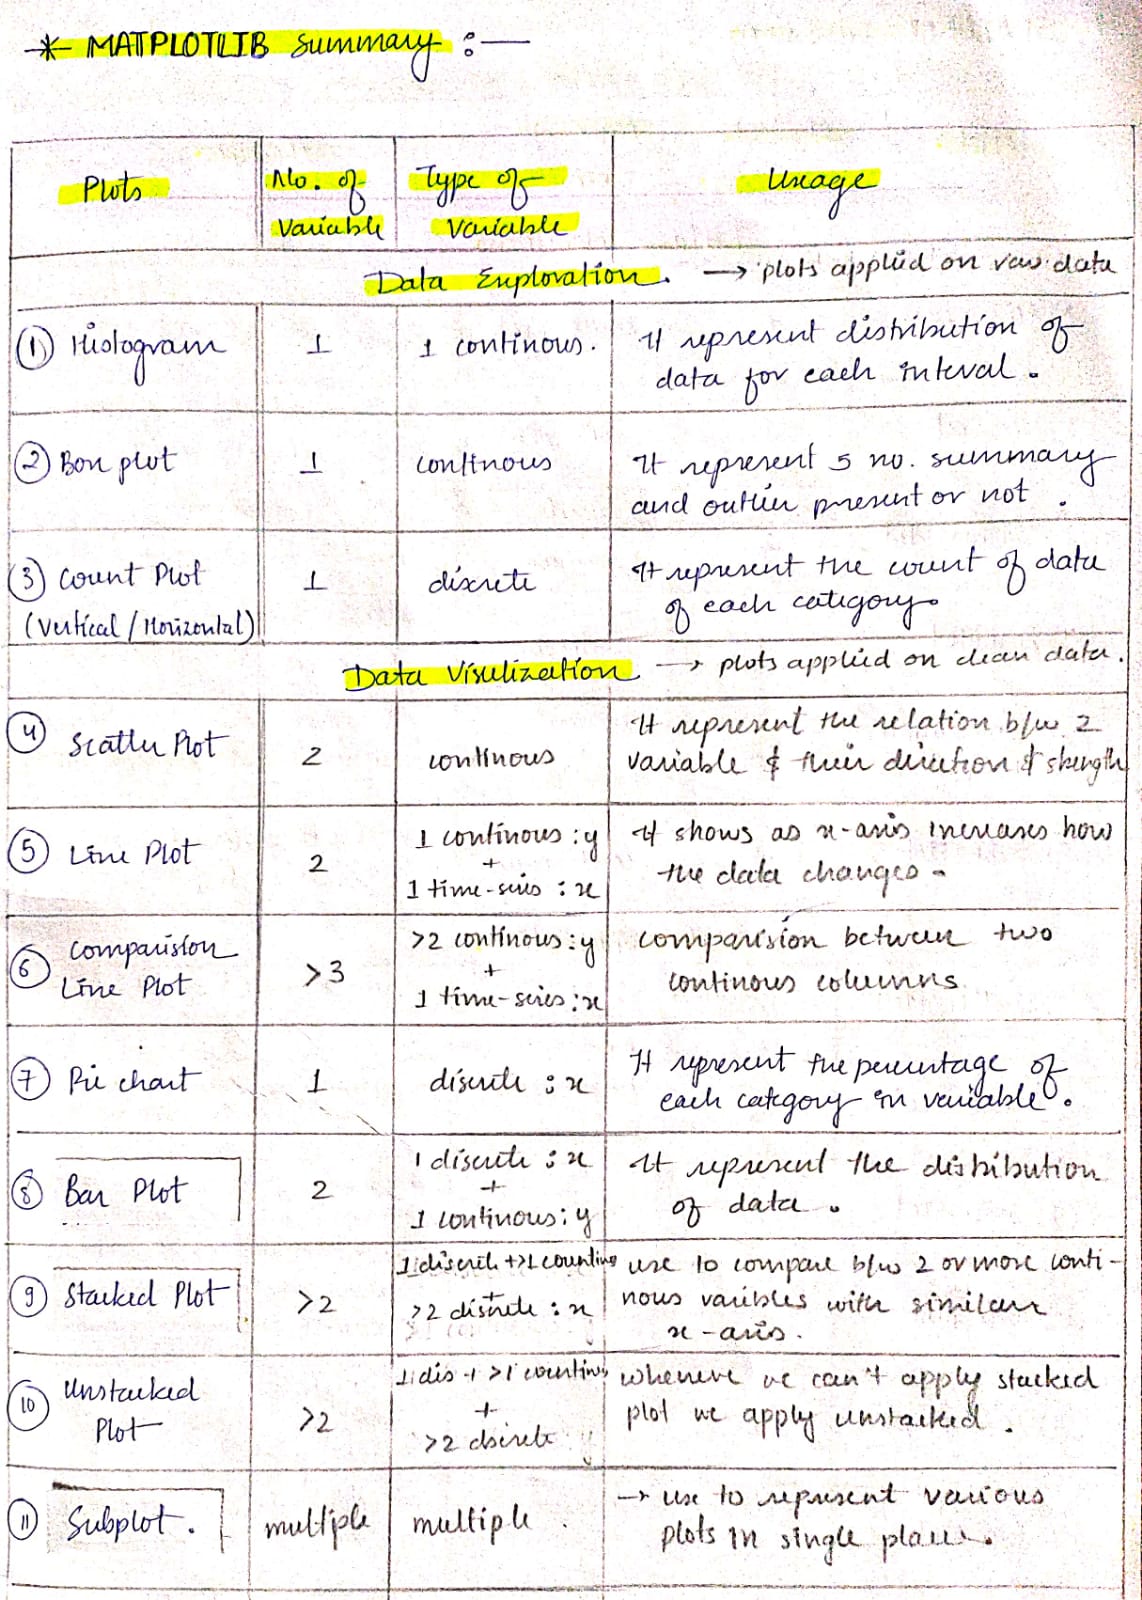 * MATPLOTLIB Summary :—
Plots
No. of
Variable
Type of
Variable
Usage
Data Exploration. → plots applied on raw data
① Histogram
1
1 continous.
It represent distribution of
data for each interval.
② Box plot
1
continous
It represent 5 no. summary
and outlier present or not.
③ Count Plot
(Vertical / Horizontal)
1
discrete
It represent the count of data
of each category.
Data Visulization → plots applied on clean data.
④ Scatter Plot
2
continous
It represent the relation b/w 2
variable & their direction & strength
⑤ Line Plot
2
1 continous : y
+
1 time-series : x
It shows as x-axis increases how
the data changes.
⑥ Comparision
Line Plot
>3
>2 continous : y
+
1 time-series : x
comparision between two
continous columns
⑦ Pie chart
1
discrete : x
It represent the percentage of
each category in variable.
⑧ Bar Plot
2
1 discrete : x
+
1 continous : y
It represent the distribution
of data.
⑨ Stacked Plot
>2
1 discrete + >1 countinous
+
>2 distrete : x
use to compare b/w 2 or more conti-
nous varibles with similar
x-axis.
⑩ Unstacked
Plot
>2
1 dis + >1 countinous
+
>2 discrete
whenever we can't apply stacked
plot we apply unstacked.
⑪ Subplot.
multiple
multiple.
→ use to represent various
plots in single place.